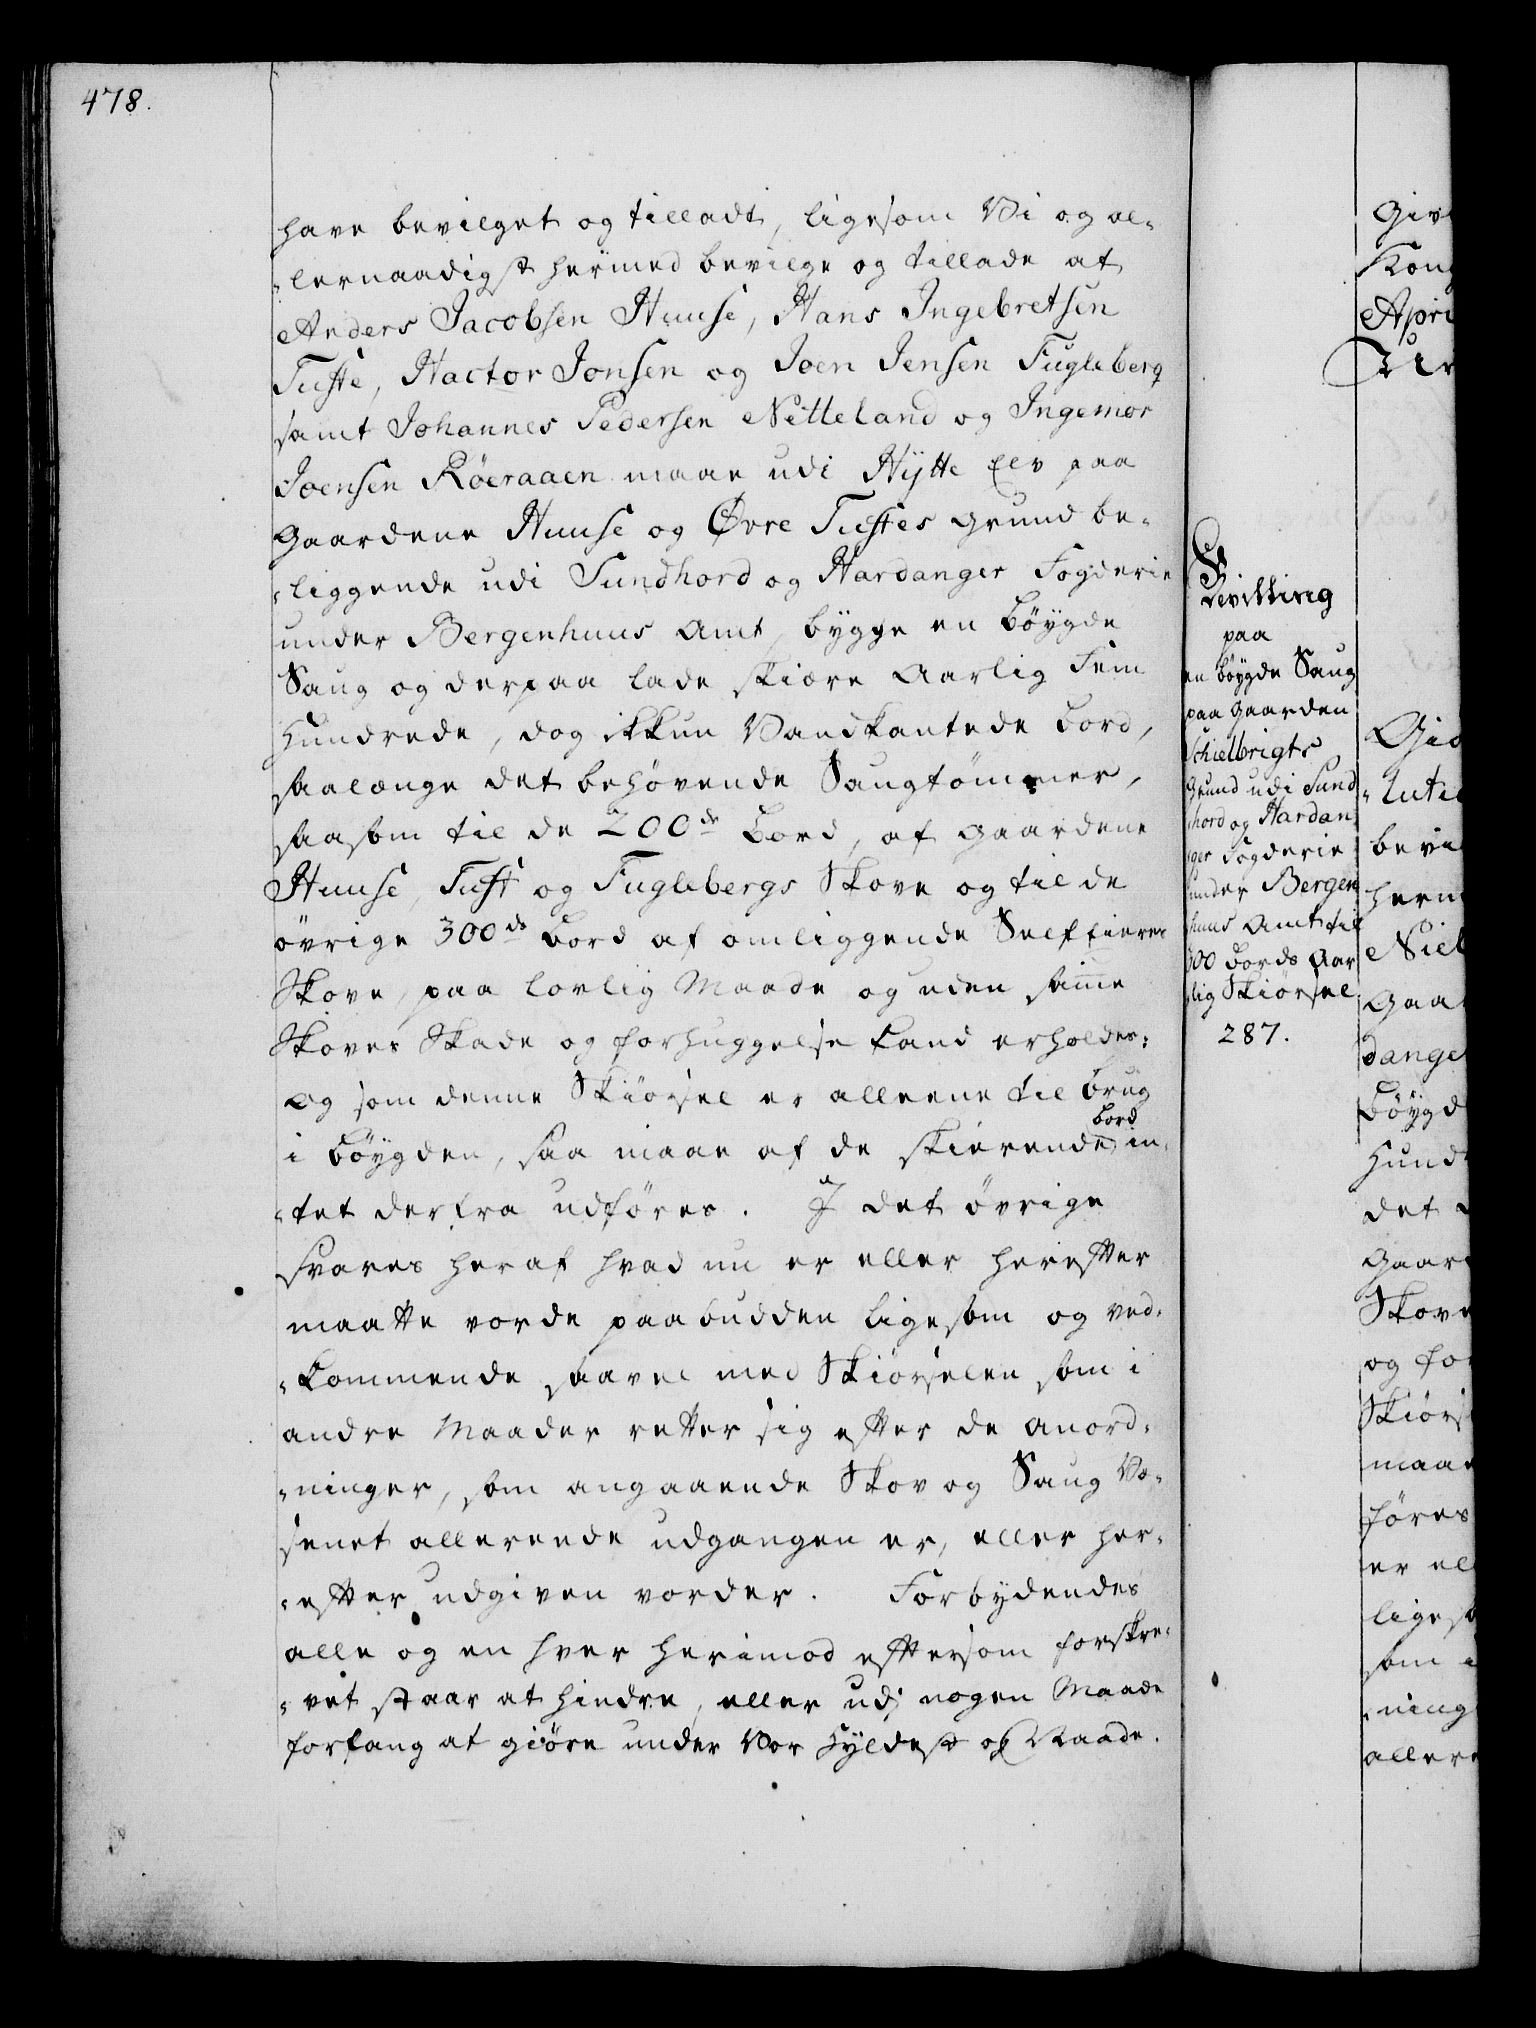 478.
have bevilget og tilladt, ligesom Vi og al-
-lernaadigst hermed bevilge og tillade at
Anders Jacobsen Huuse, Hans Ingebretsen
Tufte, Hactor Jonsen og Joen Jensen Fugleberg
samt Johannes Pedersen Netteland og Ingemor
Joensen Röeraaen maae udi Hÿtte Elv paa
Gaardene Huuse og Øvre Tuftes Grund be-
-liggende udi Sundhord og Hardanger Fogderie
under Bergenhuus Amt, bygge en Böygde
Saug og derpaa lade skiære Aarlig Fem
Hundrede, dog ikkun Vandkantede Bord,
saalænge det behøvende Saugtömmer,
saasom til de 200de Bord, af Gaardene
Huuse, Tuft og Fuglebergs Skove og til de
övrige 300de Bord af omliggende Selfeieres
Skove, paa lovlig Maade og uden samme
Skoves Skade og forhuggelse kand erholdes:
og som denne Skiörsel er alleene til brug
i Böygden, saa maae af de skierende Bord in-
-tet derfra udföres. I det övrige
svares heraf hvad nu er eller herefter
maatte vorde paabudden ligesom og ved-
-kommende saavel med Skiörselen som i
andre Maader retter sig efter de anord-
-ninger, som angaaende Skov og Saug Væ-
senet allerede udgangen er, eller her-
-efter udgiven vorder. Forbydendes
alle og en hver herimod eftersom forskre-
-vet staar at hindre, eller udj nogen Maade
forfang at giöre under Vor Hyldest og Naade.
Bevilling
paa
en böygde Saug
paa Gaarden
Schielbrigts
Grund udi Sund
hord og Hardan
ger Fogderie
under Bergen
huus Amt til
500 Bords Aar
lig Skiörsel
287.
Giv
Kong
Apri
Gid
-lutie
bevi
herm
Niel
Gaa
dange
Böygd
Hund
det
Gaar
Skove
og for
Skiörs
maae
föres
er ell
liges
som i
-ning
allere